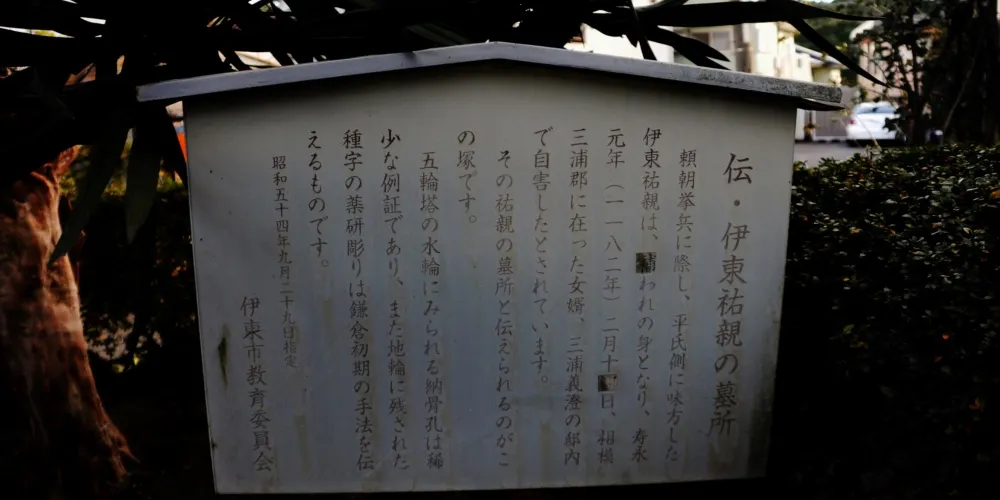 伝・伊東祐親の墓所
頼朝挙兵に際し、平氏側に味方した
伊東祐親は、捕われの身となり、寿永
元年（一一八二年）二月十 日、相模
三浦郡に在った女婿、三浦義澄の邸内
で自害したとされています。
その祐親の墓所と伝えられるのがこ
の塚です。
五輪塔の水輪にみられる納骨孔は稀
少な例証であり、また地輪に残された
種字の薬研彫りは鎌倉初期の手法を伝
えるものです。
昭和五十四年九月二十九日指定
伊東市教育委員会